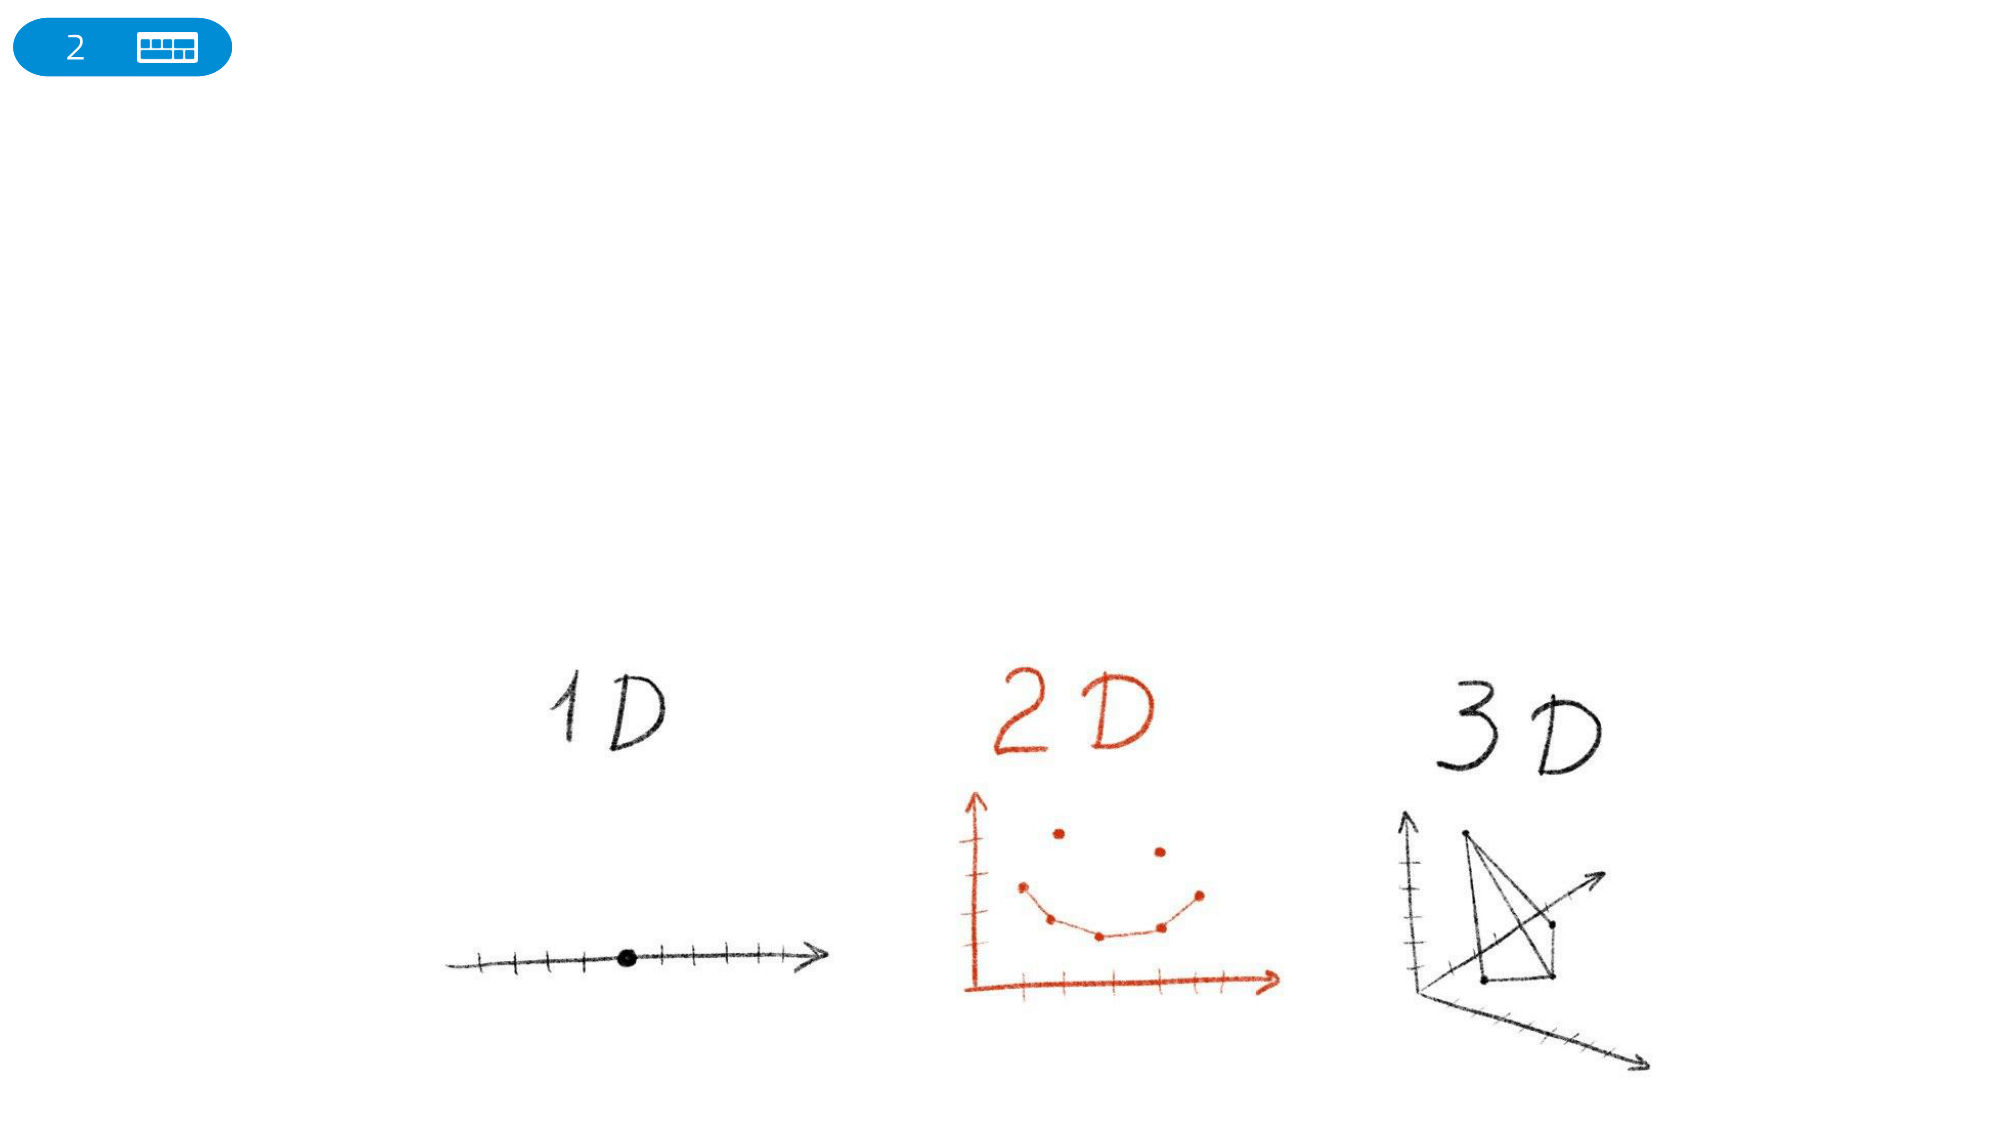 2
1D 2D 3D